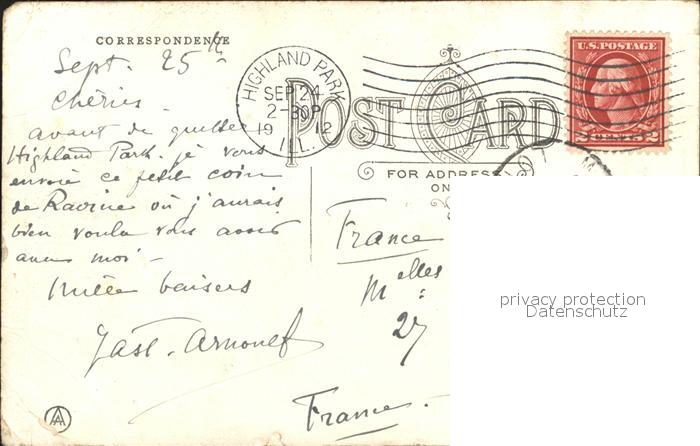 CORRESPONDENCE
Sept. 25th
Chéries -
avant de quitter
Highland Park. je vous
envoie ce petit coin
de Ravine où j'aurais
bien voulu vous avoir
avec moi -
Mille baisers
HIGHLAND PARK
SEP 24
2-30P
19 12
ILL.
POST CARD
FOR ADDRESS
ON
U.S. POSTAGE
2 CENTS 2
France
Melles
27
France.
privacy protection
Datenschutz